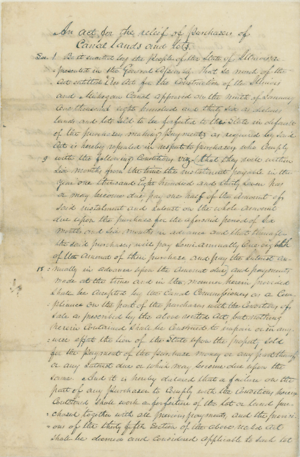 An act for the relief of purchasers of
Canal Lands and Lots.
Sec. 1 Be it enacted by the People of the State of Illinois
represented in the General Assembly, That so much of the
Act entitled An Act for the Construction of the Illinois
and Michigan Canal approved on the ninth of January
one thousand eight hundred and thirty six as declares
land and lots sold to be forfeited to the State in default
of the purchaser making payments as required by said
Act is hereby repealed in respect to purchasers who comply
with the following Conditions viz, that they shall within
Six months from the time the instalment payable in the
year one thousand Eight hundred and thirty Seven has
or may become due pay one half of the amount of
such instalment and Interest on the whole amount
due upon the purchase for the aforesaid period of Six
months and Six months in advance and that thereafter
the said purchasers will pay Semi annually one
of the amount of their purchase and pay the interest
annually in advance upon the amount due, and payments
made at the time and in the manner herein provided
Shall be accepted by the Canal Commissioners as a Com-
pliance on the part of the purchasers with the Conditions of
Sale as presented by the above recited Act but nothing
herein contained Shall be construed to impair or in any
wise affect the lien of the State upon the property sold
for the payment of the purchase money or any part thereof
or any interest due or which may become due upon the
same And it is hereby declared that a failure on the
part of any purchasers to comply with the Conditions herein
Contained Shall work a forfeiture of the lot or land pur-
chased together with all previous payments, and the provis-
ions of the thirty fifth Section of the above recited Act
shall be deemed and considered applicable to such lot